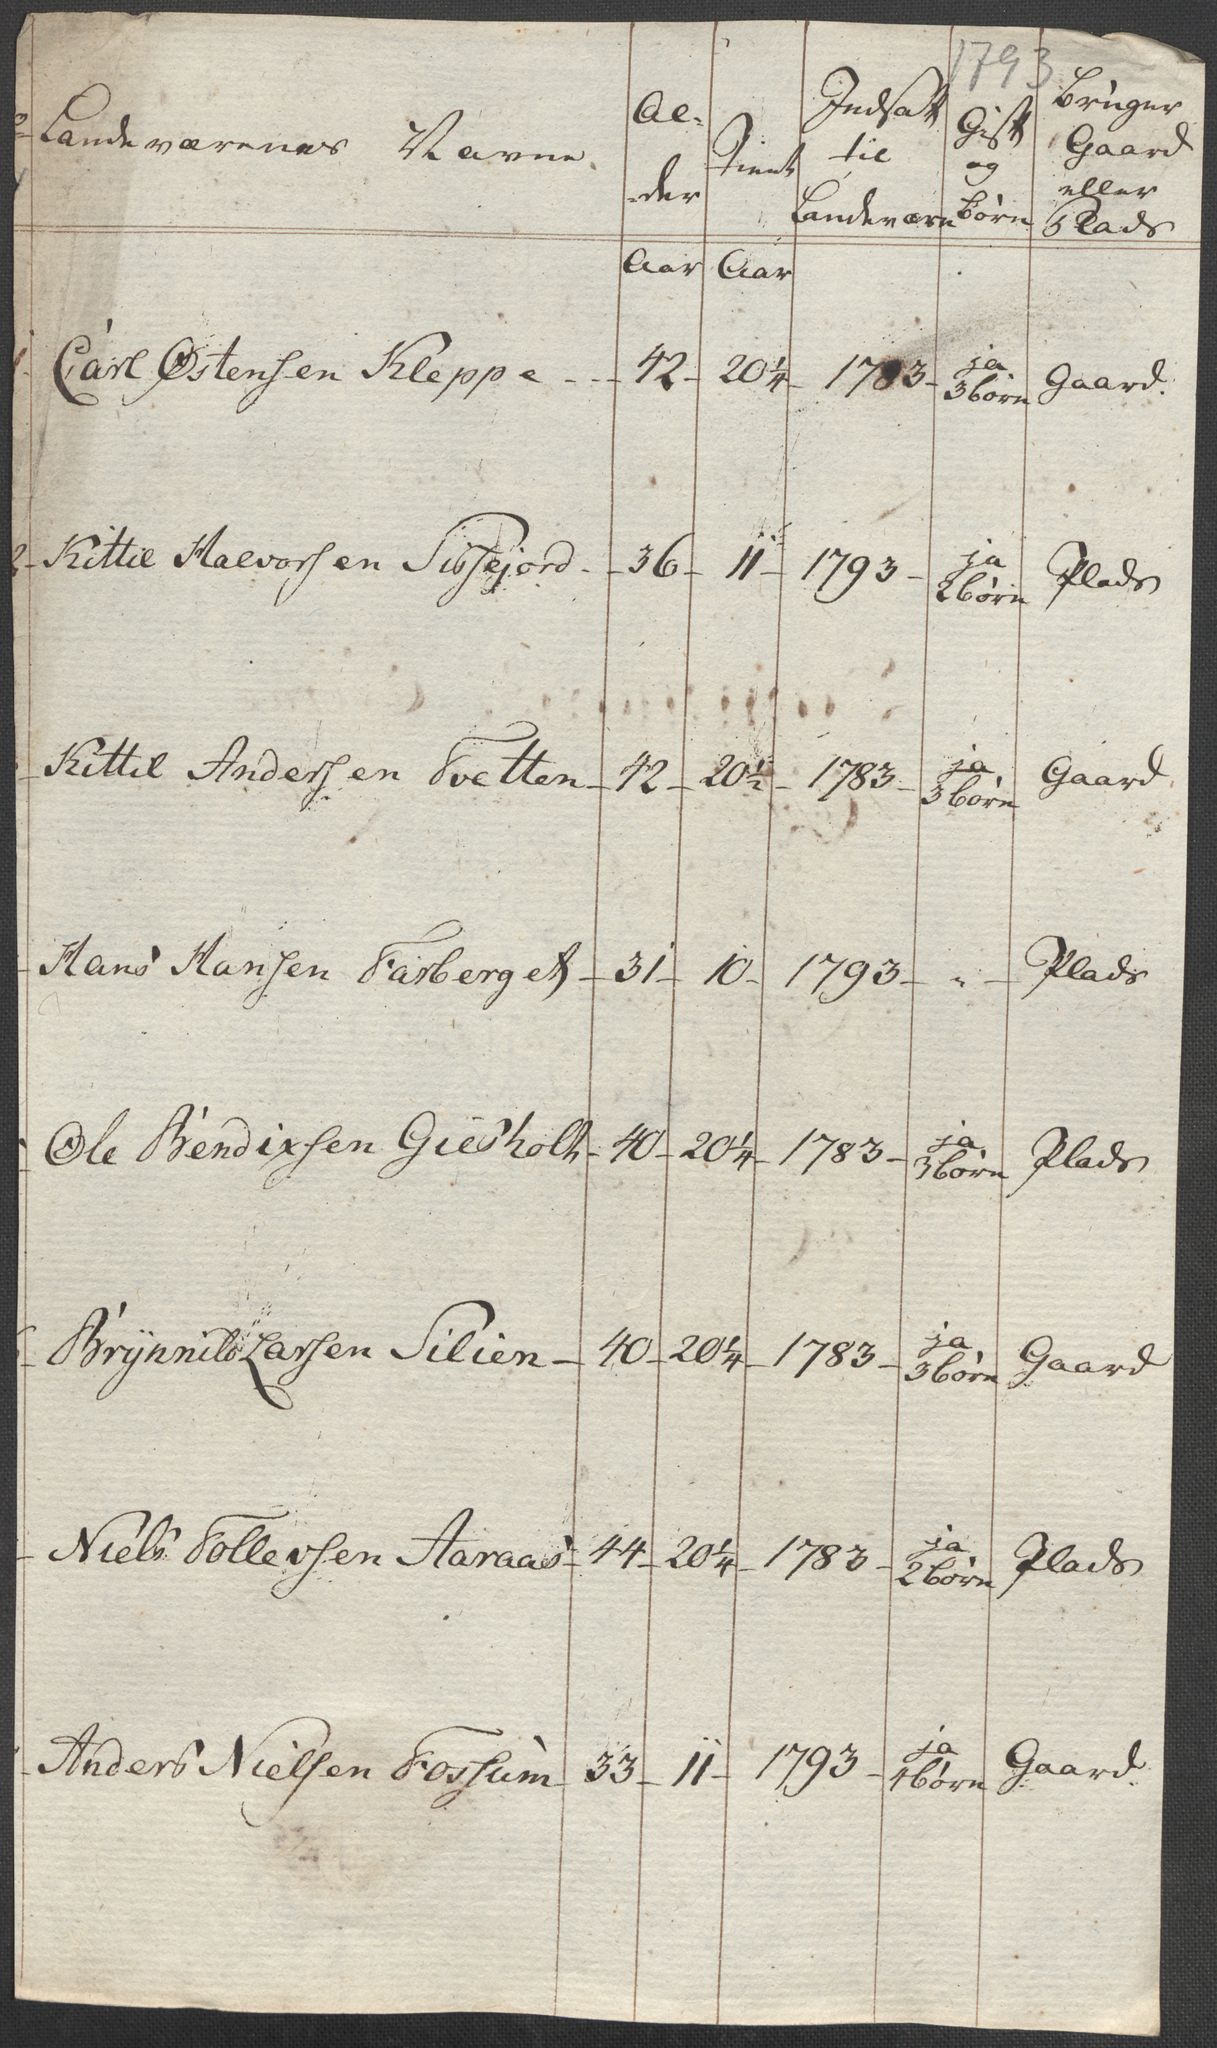 1793
Landeværenes Navne
Al-
-der
Tient
Indsatt
til
Landeværn
Gift
og
børn
Bruger
Gaard
eller
Plads
Aar Aar
Carl Østensen Kleppe - - 42 - 20 1/4 - 1783 - ja 3 børn Gaard.
2 - Kittil Halvorsen Sissejord - - 36 - 11 - 1793 - ja 2 børn Plads
- Kittil Andersen Tvetten - 42 - 20 1/2 - 1783 - ja 3 børn Gaard
- Hans Hansen Farberget - 31 - 10 - 1793 - " - Plads
Ole Bendixsen Giesholt - 40 - 20 1/4 - 1783 - ja 3 børn Plads
- Brynnild Larsen Silien - 40 - 20 1/4 - 1783 - ja 3 børn Gaard
- Niels Tollevsen Aaraas - 44 - 20 1/4 - 1783 - ja 2 børn Plads
- Anders Nielsen Fossum - 33 - 11 - 1793 - ja 4 børn Gaard.